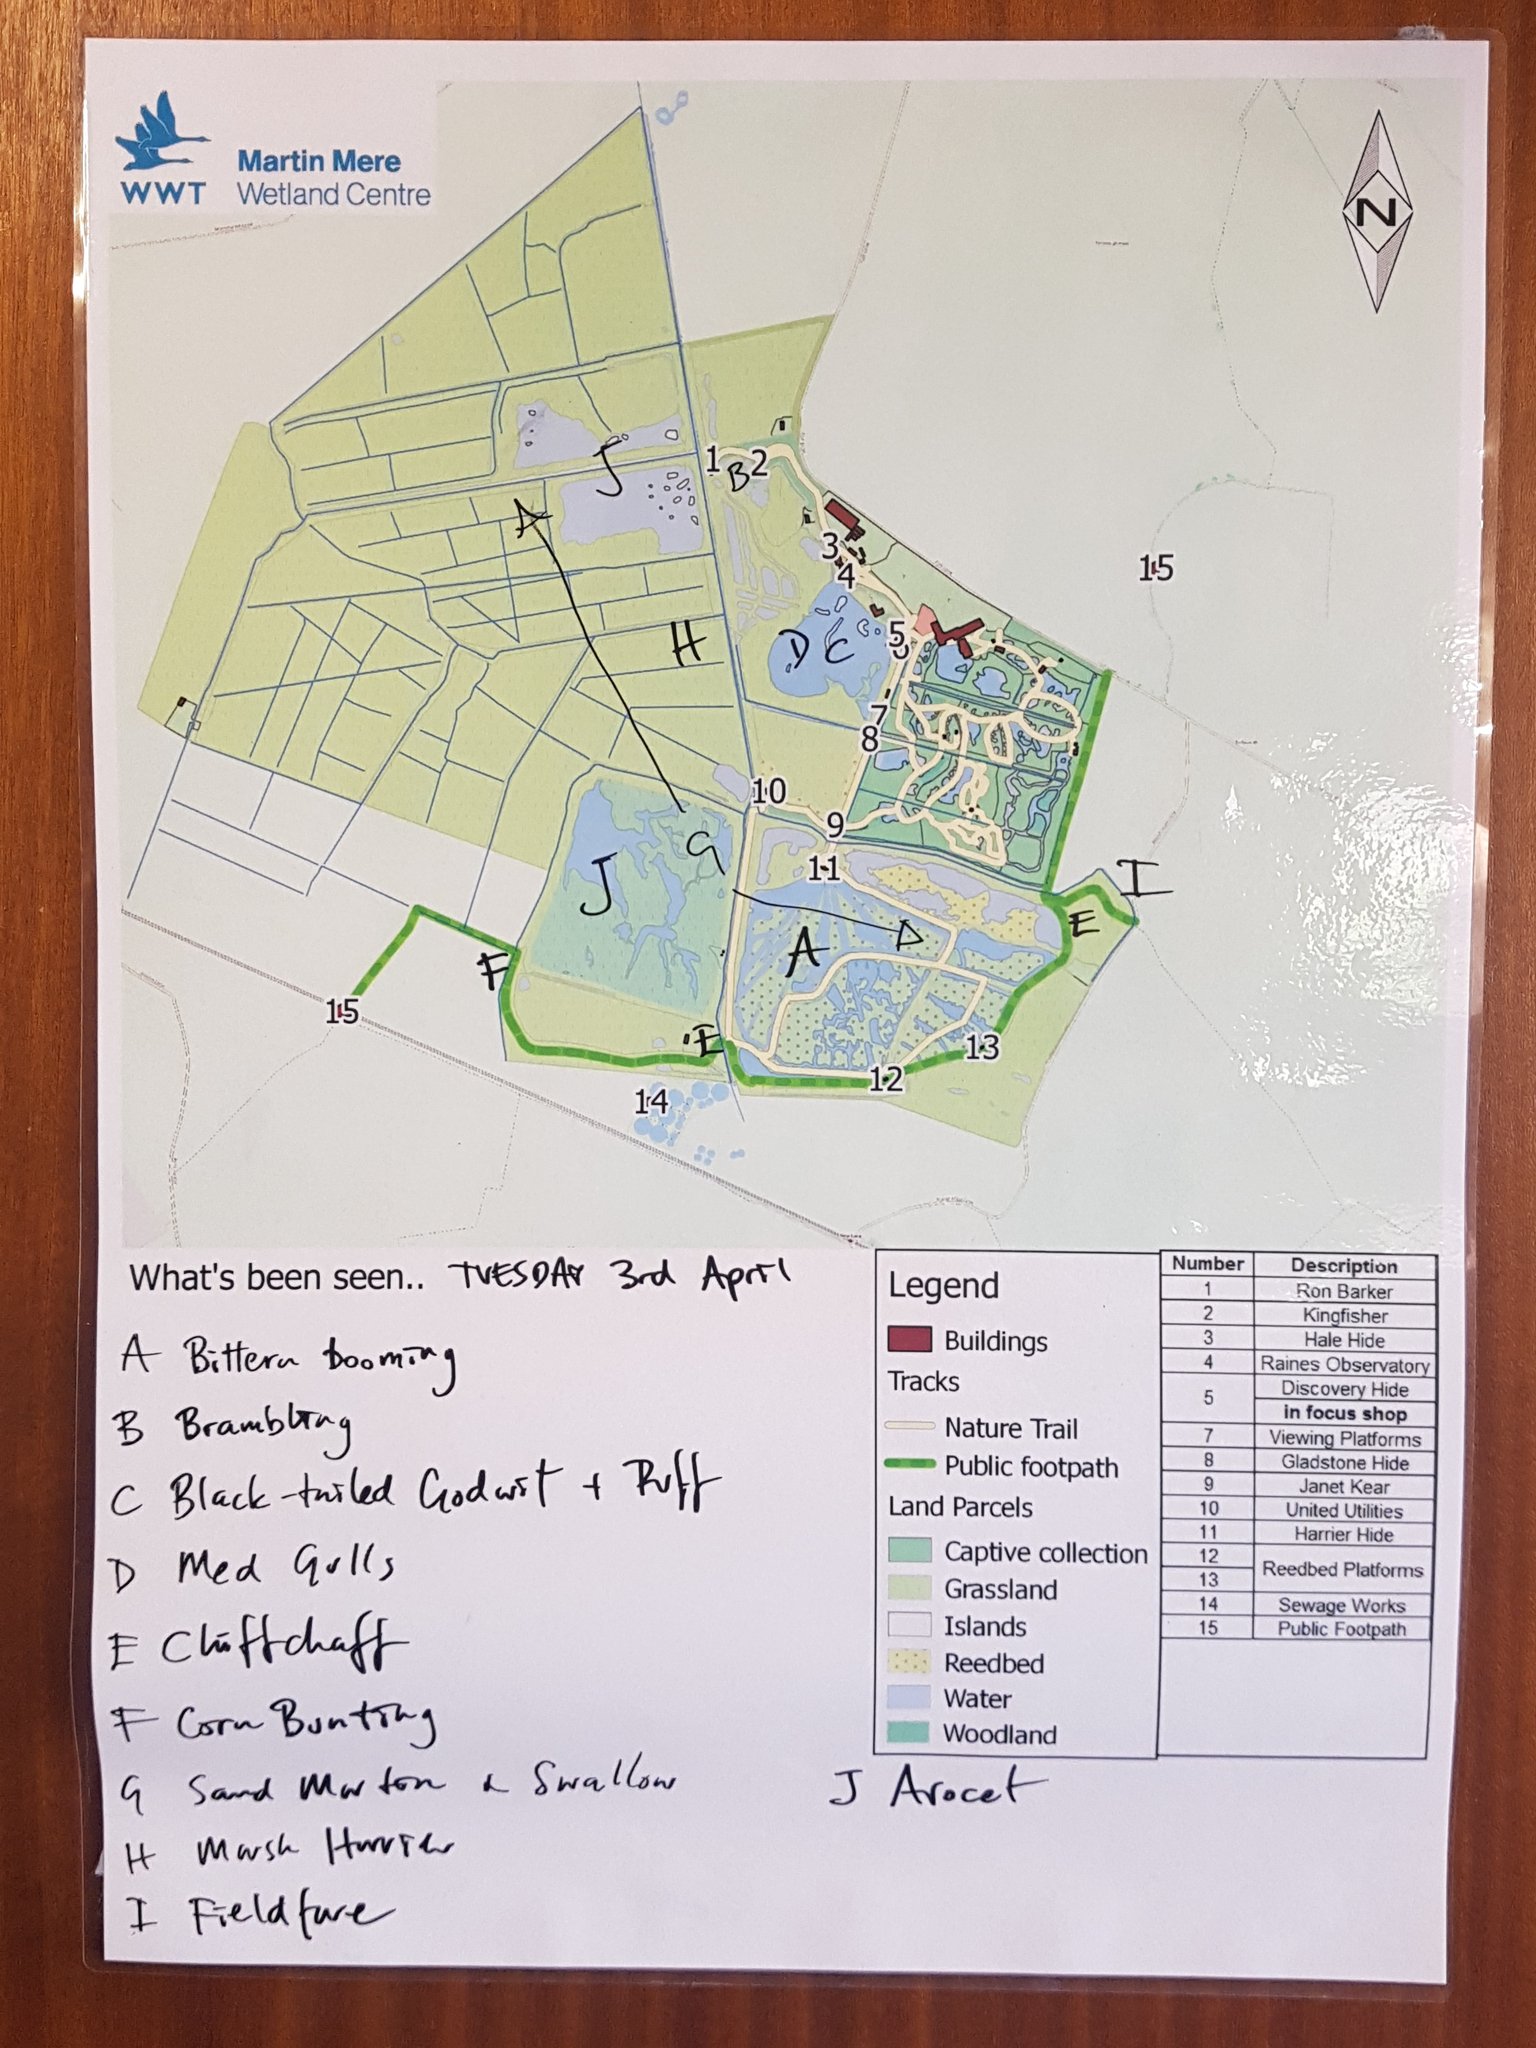 WWT
Martin Mere
Wetland Centre
N
J
1
B
2
A
3
4
15
H
D C
5
7
8
10
9
G
11
I
J
E
A
F
15
E
13
12
14
What's been seen.. TUESDAY 3rd April
A Bittern booming
B Brambling
C Black-tailed Godwit + Ruff
D Med Gulls
E Chiffchaff
F Corn Bunting
G Sand Martin & Swallow
H Marsh Harrier
I Fieldfare
J Avocet
Legend
Buildings
Tracks
Nature Trail
Public footpath
Land Parcels
Captive collection
Grassland
Islands
Reedbed
Water
Woodland
Number Description
1 Ron Barker
2 Kingfisher
3 Hale Hide
4 Raines Observatory
5 Discovery Hide
in focus shop
7 Viewing Platforms
8 Gladstone Hide
9 Janet Kear
10 United Utilities
11 Harrier Hide
12 Reedbed Platforms
13
14 Sewage Works
15 Public Footpath